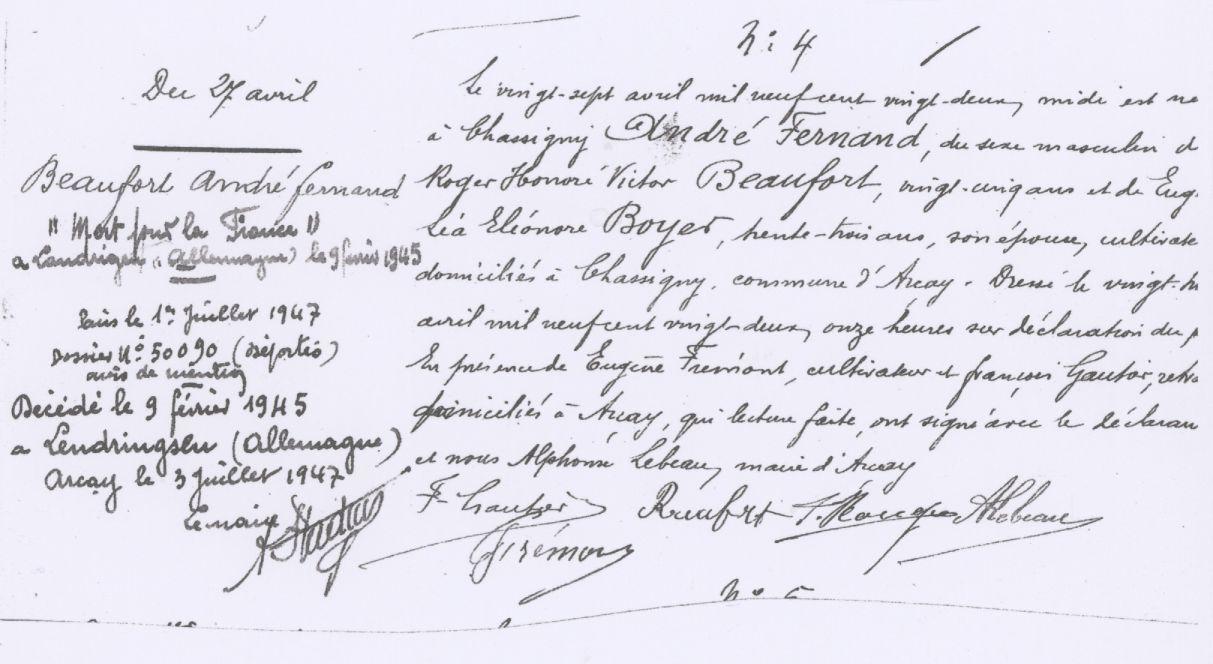 Du 27 avril
Beaufort André Fernand
"Mort pour la France"
a Lendringsen (Allemagne) le 9 février 1945
Paris le 1er Juillet 1947
Dossier N° 50090 (Déportés)
avis de mention
Décédé le 9 février 1945
a Lendringsen (Allemagne)
Arçay le 3 Juillet 1947
Le maire
N: 4
Le vingt-sept avril mil neuf cent vingt-deux, midi est né
à Chassigny André Fernand, du sexe masculin d
Roger Honoré Victor Beaufort, vingt-cinq ans et de Eug
Léa Eléonore Boyer, trente-trois ans, son épouse, cultivate
domiciliés à Chassigny, commune d'Arçay. Dressé le vingt-hu
avril mil neuf cent vingt-deux, onze heures sur déclaration du p
En présence de Eugène Frémont, cultivateur et françois Gautier, retra
domiciliés à Arçay, qui lecture faite, ont signé avec le déclaran
et nous Alphonse Lebeau, maire d'Arçay
F. Gautier Beaufort ALebeau
Frémon
N° 5